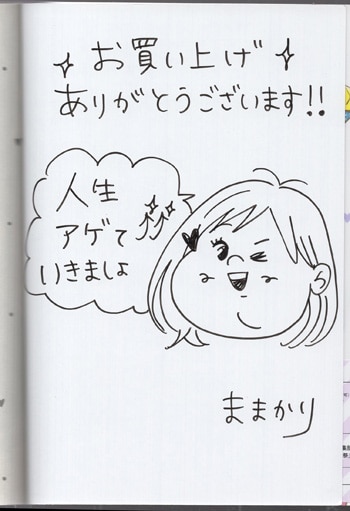 お買い上げ
ありがとうございます!!
人生
アゲて
いきましょ
ままかり